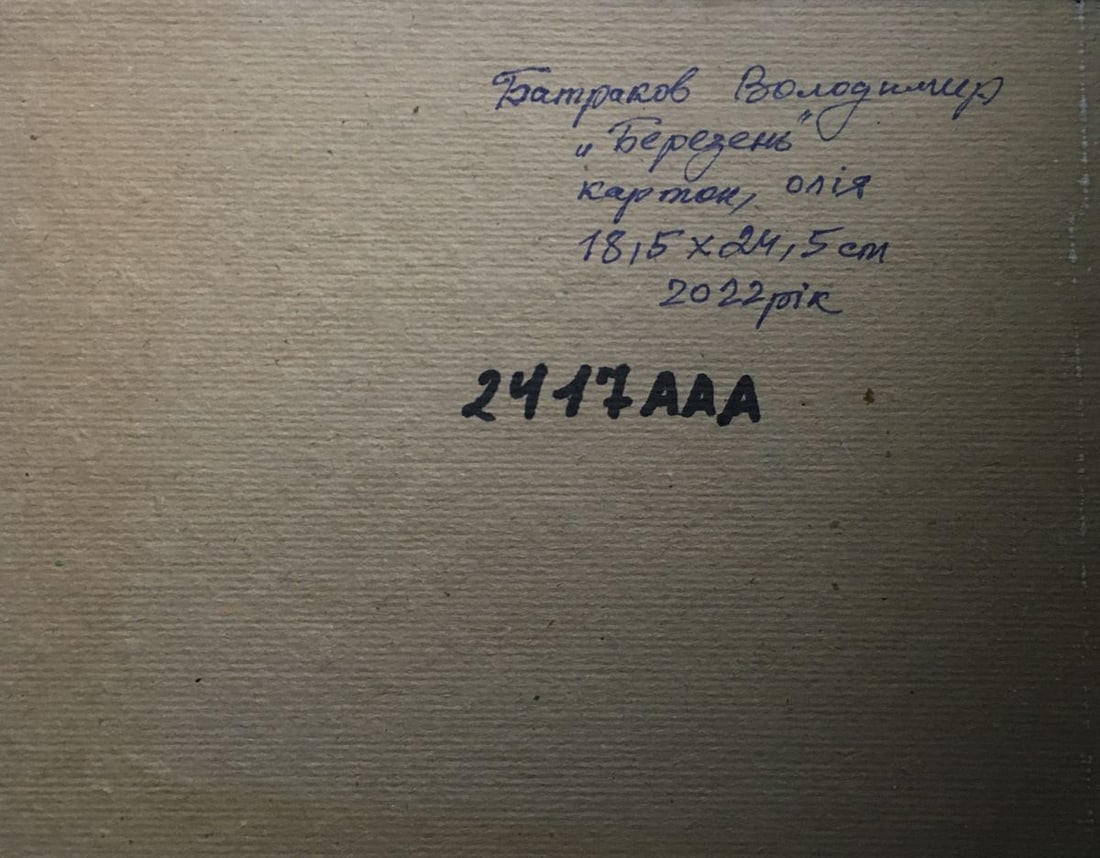 Батраков Володимир
„Березень"
картон, олія
18,5 х 24,5 см
2022рік
2417ААА